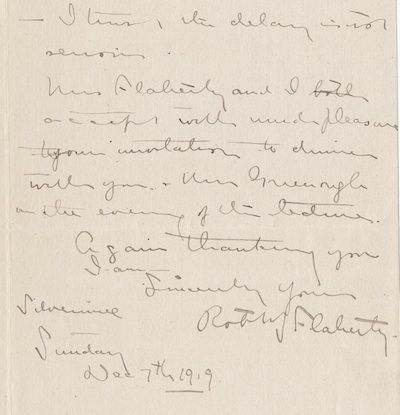 — I trust, the delay is not
serious.
Mrs Flaherty and I both
accept with much pleasure
your invitation to dinner
with you & Mrs Greenough
on the evening of the lecture.
Again thanking you
I am
Sincerely Yours
Robt J Flaherty.
Silvermine
Sunday
Dec 7th 1919